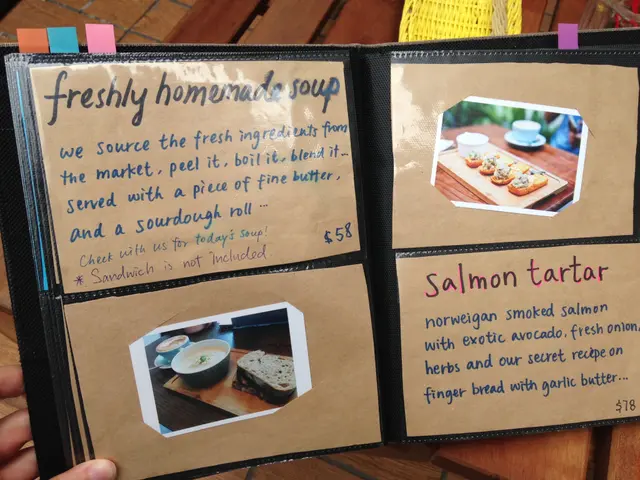 freshly homemade soup
we source the fresh ingredients from
the market, peel it, boil it, blend it...
served with a piece of fine butter,
and a sourdough roll...
$58
Check with us for today's soup!
* Sandwich is not included.
salmon tartar
norweigan smoked salmon
with exotic avocado, fresh onion,
herbs and our secret recipe on
finger bread with garlic butter...
$78